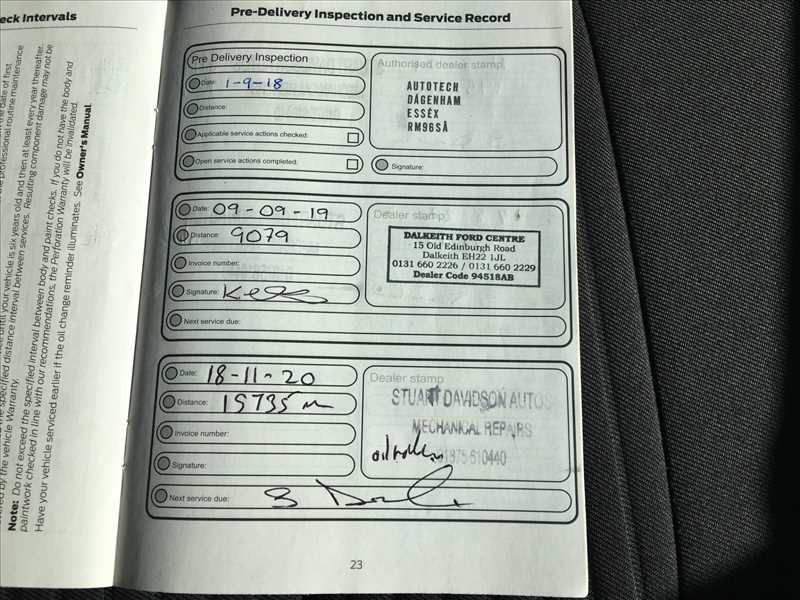 eck Intervals
the date of first
the professional routine maintenance
until your vehicle is six years old and then at least every year thereafter.
the specified distance interval between services. Resulting component damage may not be
covered by the vehicle Warranty.
Note: Do not exceed the specified interval between body and paint checks. If you do not have the body and
paintwork checked in line with our recommendations, the Perforation Warranty will be invalidated.
Have your vehicle serviced earlier if the oil change reminder illuminates. See Owner's Manual.
Pre-Delivery Inspection and Service Record
Pre Delivery Inspection
Date: 1-9-18
Distance:
Applicable service actions checked:
Open service actions completed:
Authorised dealer stamp
AUTOTECH
DAGENHAM
ESSEX
RM96SA
Signature:
Date: 09-09-19
Distance: 9079
Invoice number:
Signature:
Next service due:
Dealer stamp
DALKEITH FORD CENTRE
15 Old Edinburgh Road
Dalkeith EH22 1JL
0131 660 2226 / 0131 660 2229
Dealer Code 94518AB
Date: 18-11-20
Distance: 15735 m
Invoice number:
Signature:
Next service due:
Dealer stamp
STUART DAVIDSON AUTOS
MECHANICAL REPAIRS
1875 610440
23